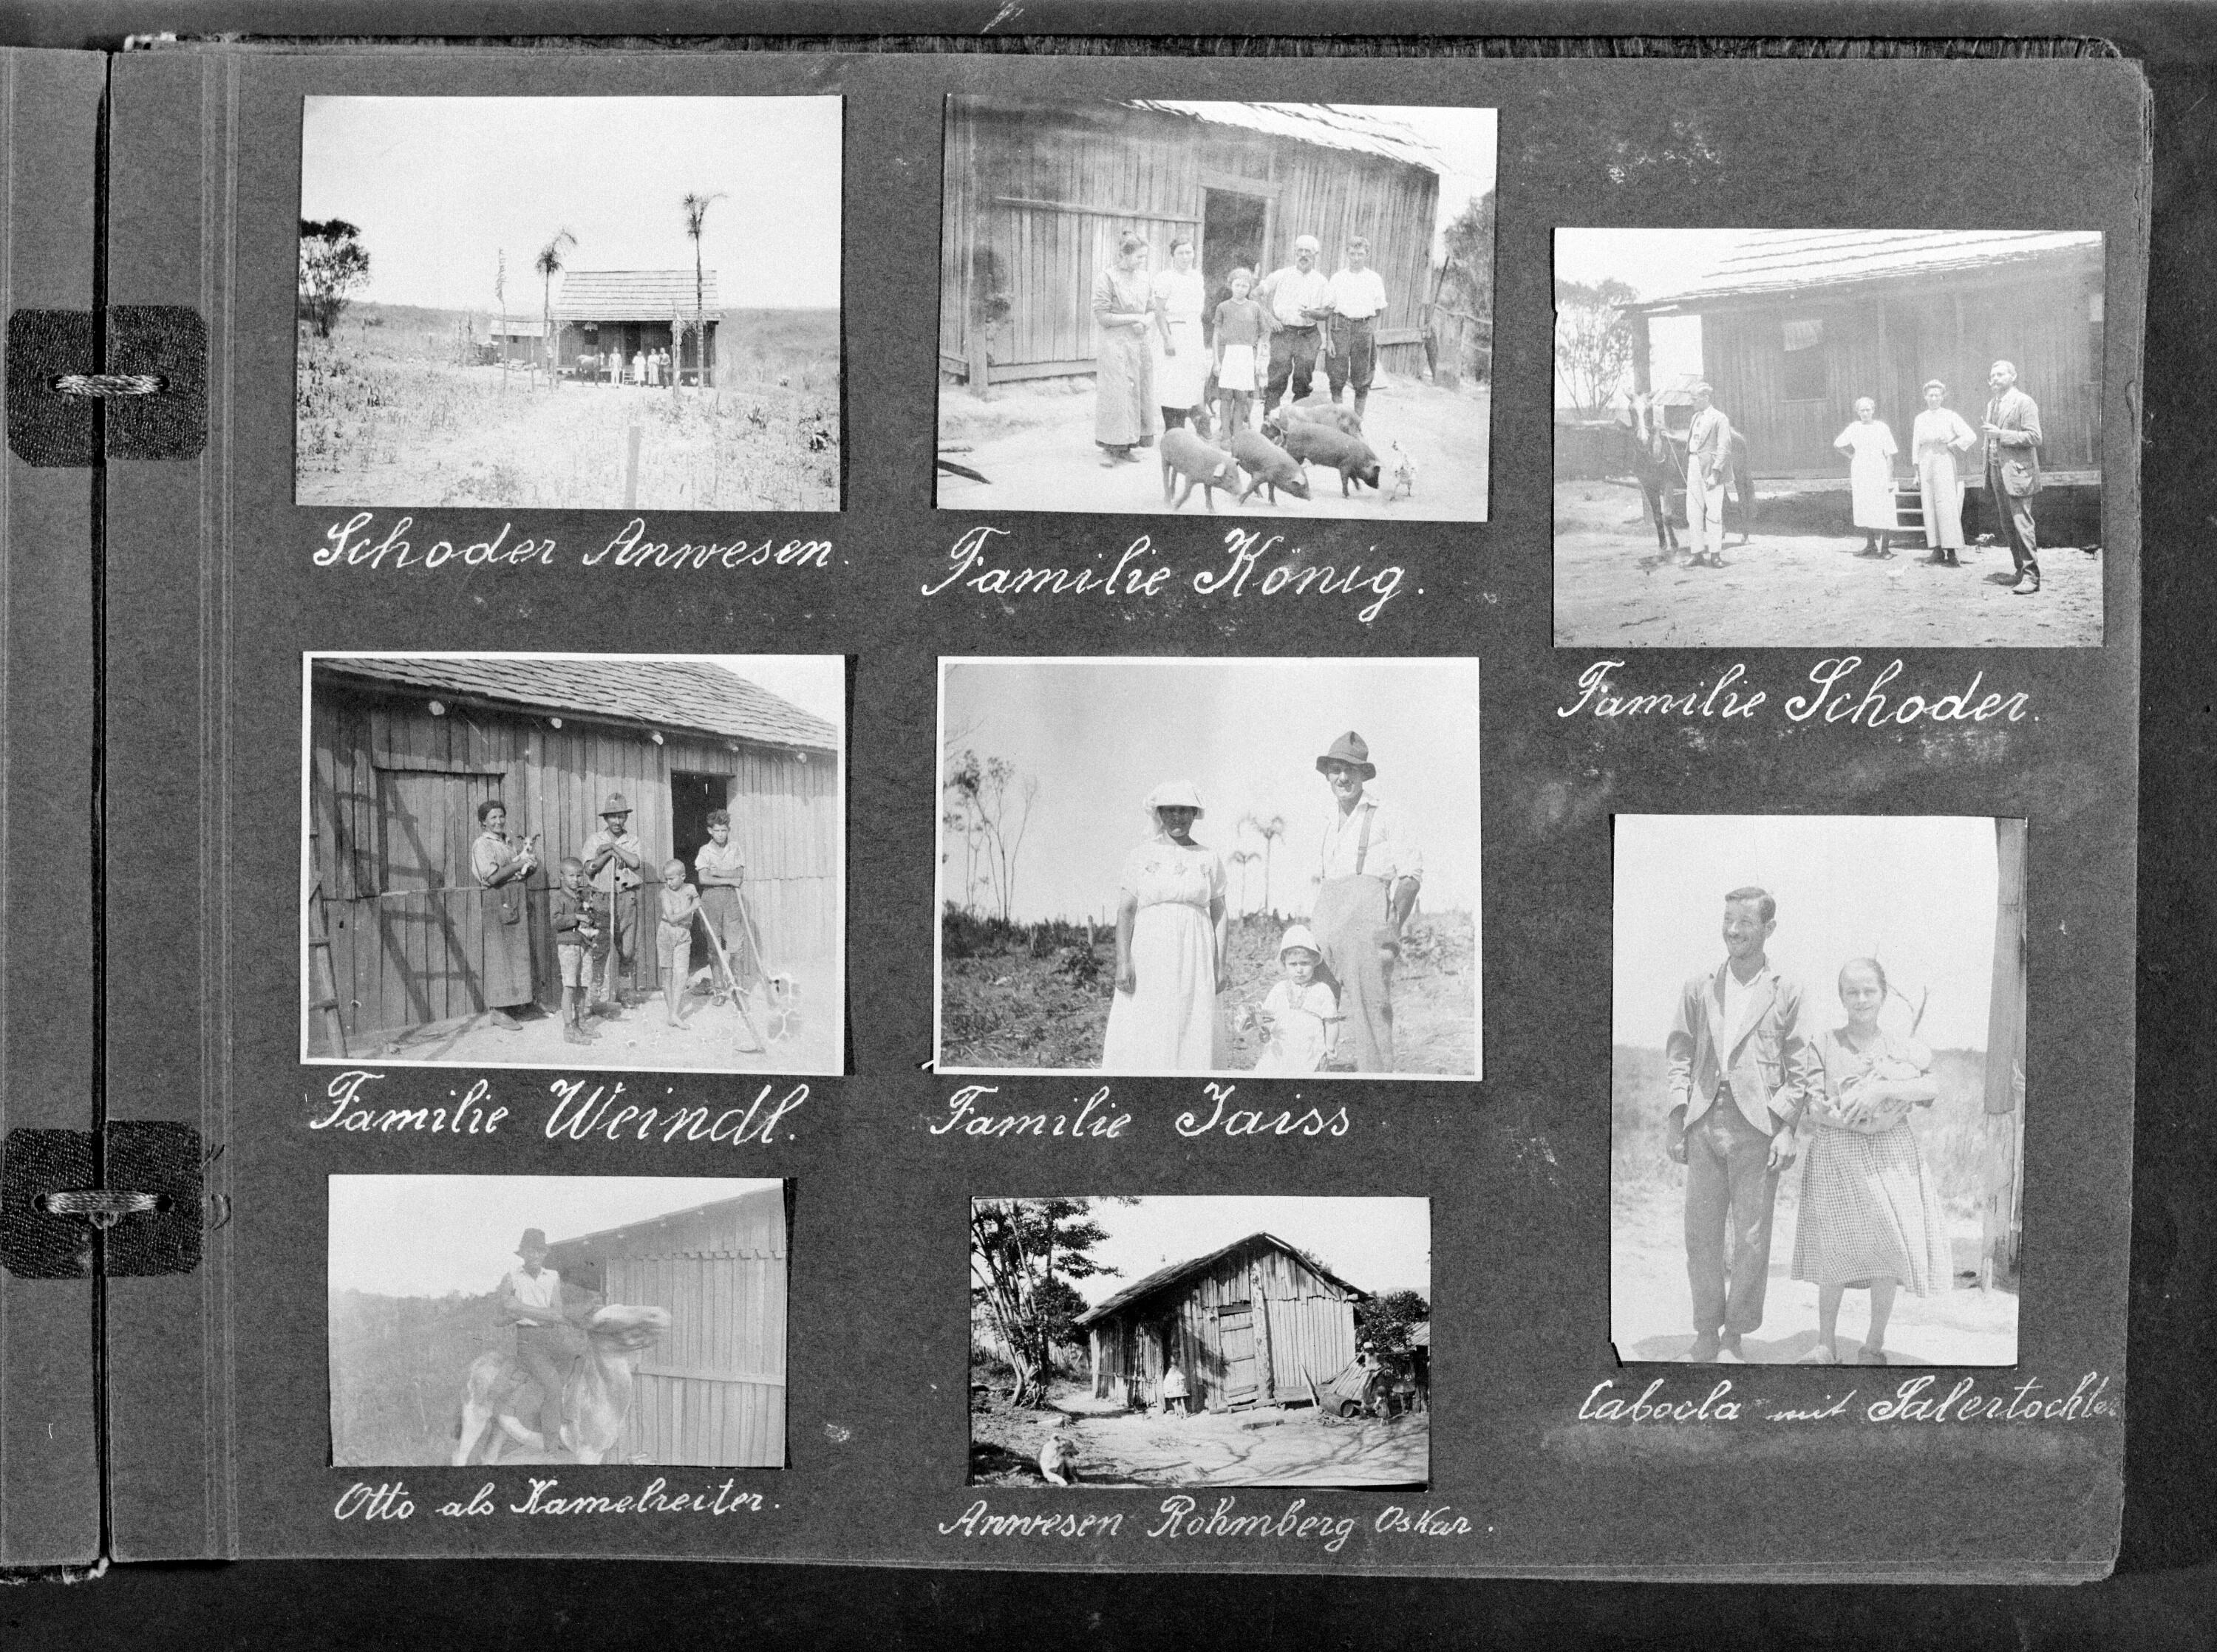 Schoder Anwesen.
Familie König.
Familie Schoder.
Familie Weindl.
Familie Jaiss
Cabocla mit Salertochter
Otto als Kamelreiter.
Anwesen Röhmberg Oskar.